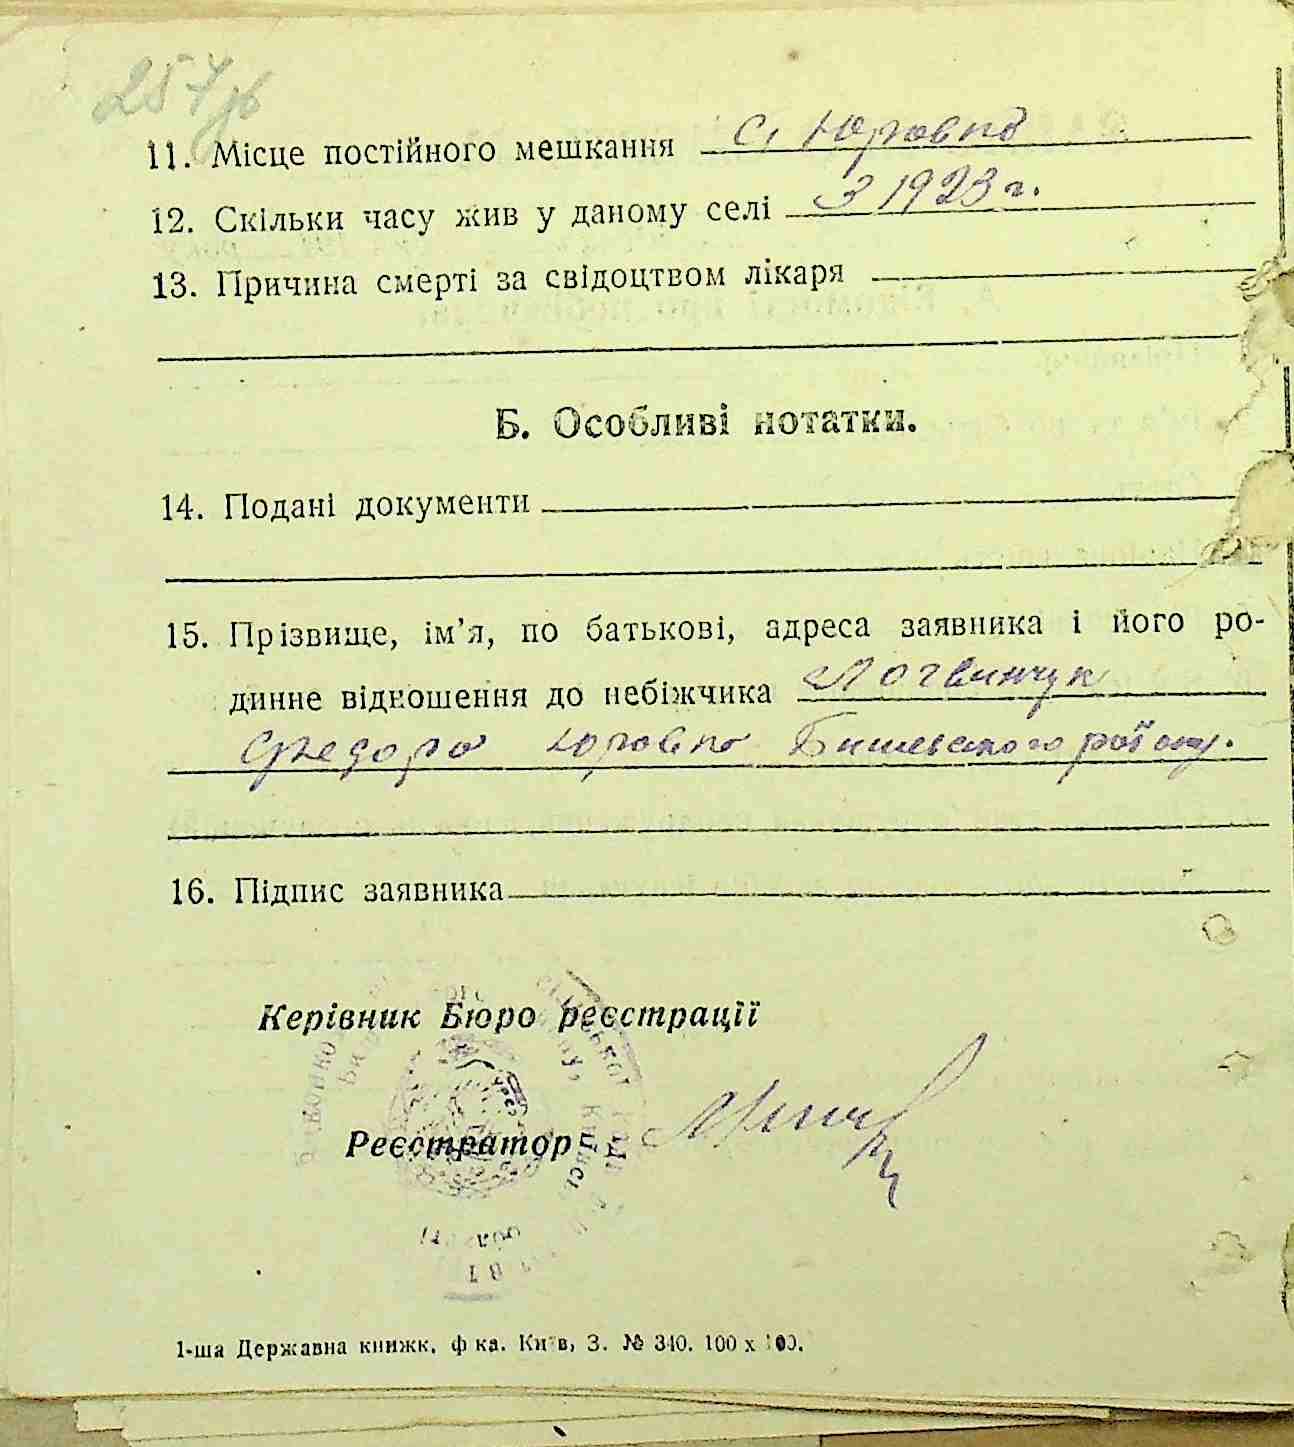 257 зв
11. Місце постійного мешкання с. Юровка
12. Скільки часу жив у даному селі З 1923 г.
13. Причина смерті за свідоцтвом лікаря
Б. Особливі нотатки.
14. Подані документи
15. Прізвище, ім’я, по батькові, адреса заявника і його ро-
динне відношення до небіжчика Логвинчук
Федора Юровка Бишевского району.
16. Підпис заявника
Керівник Бюро реєстрації
Реєстратор
1-ша Державна книжк. ф-ка. Київ, З. № 340. 100 х 100.